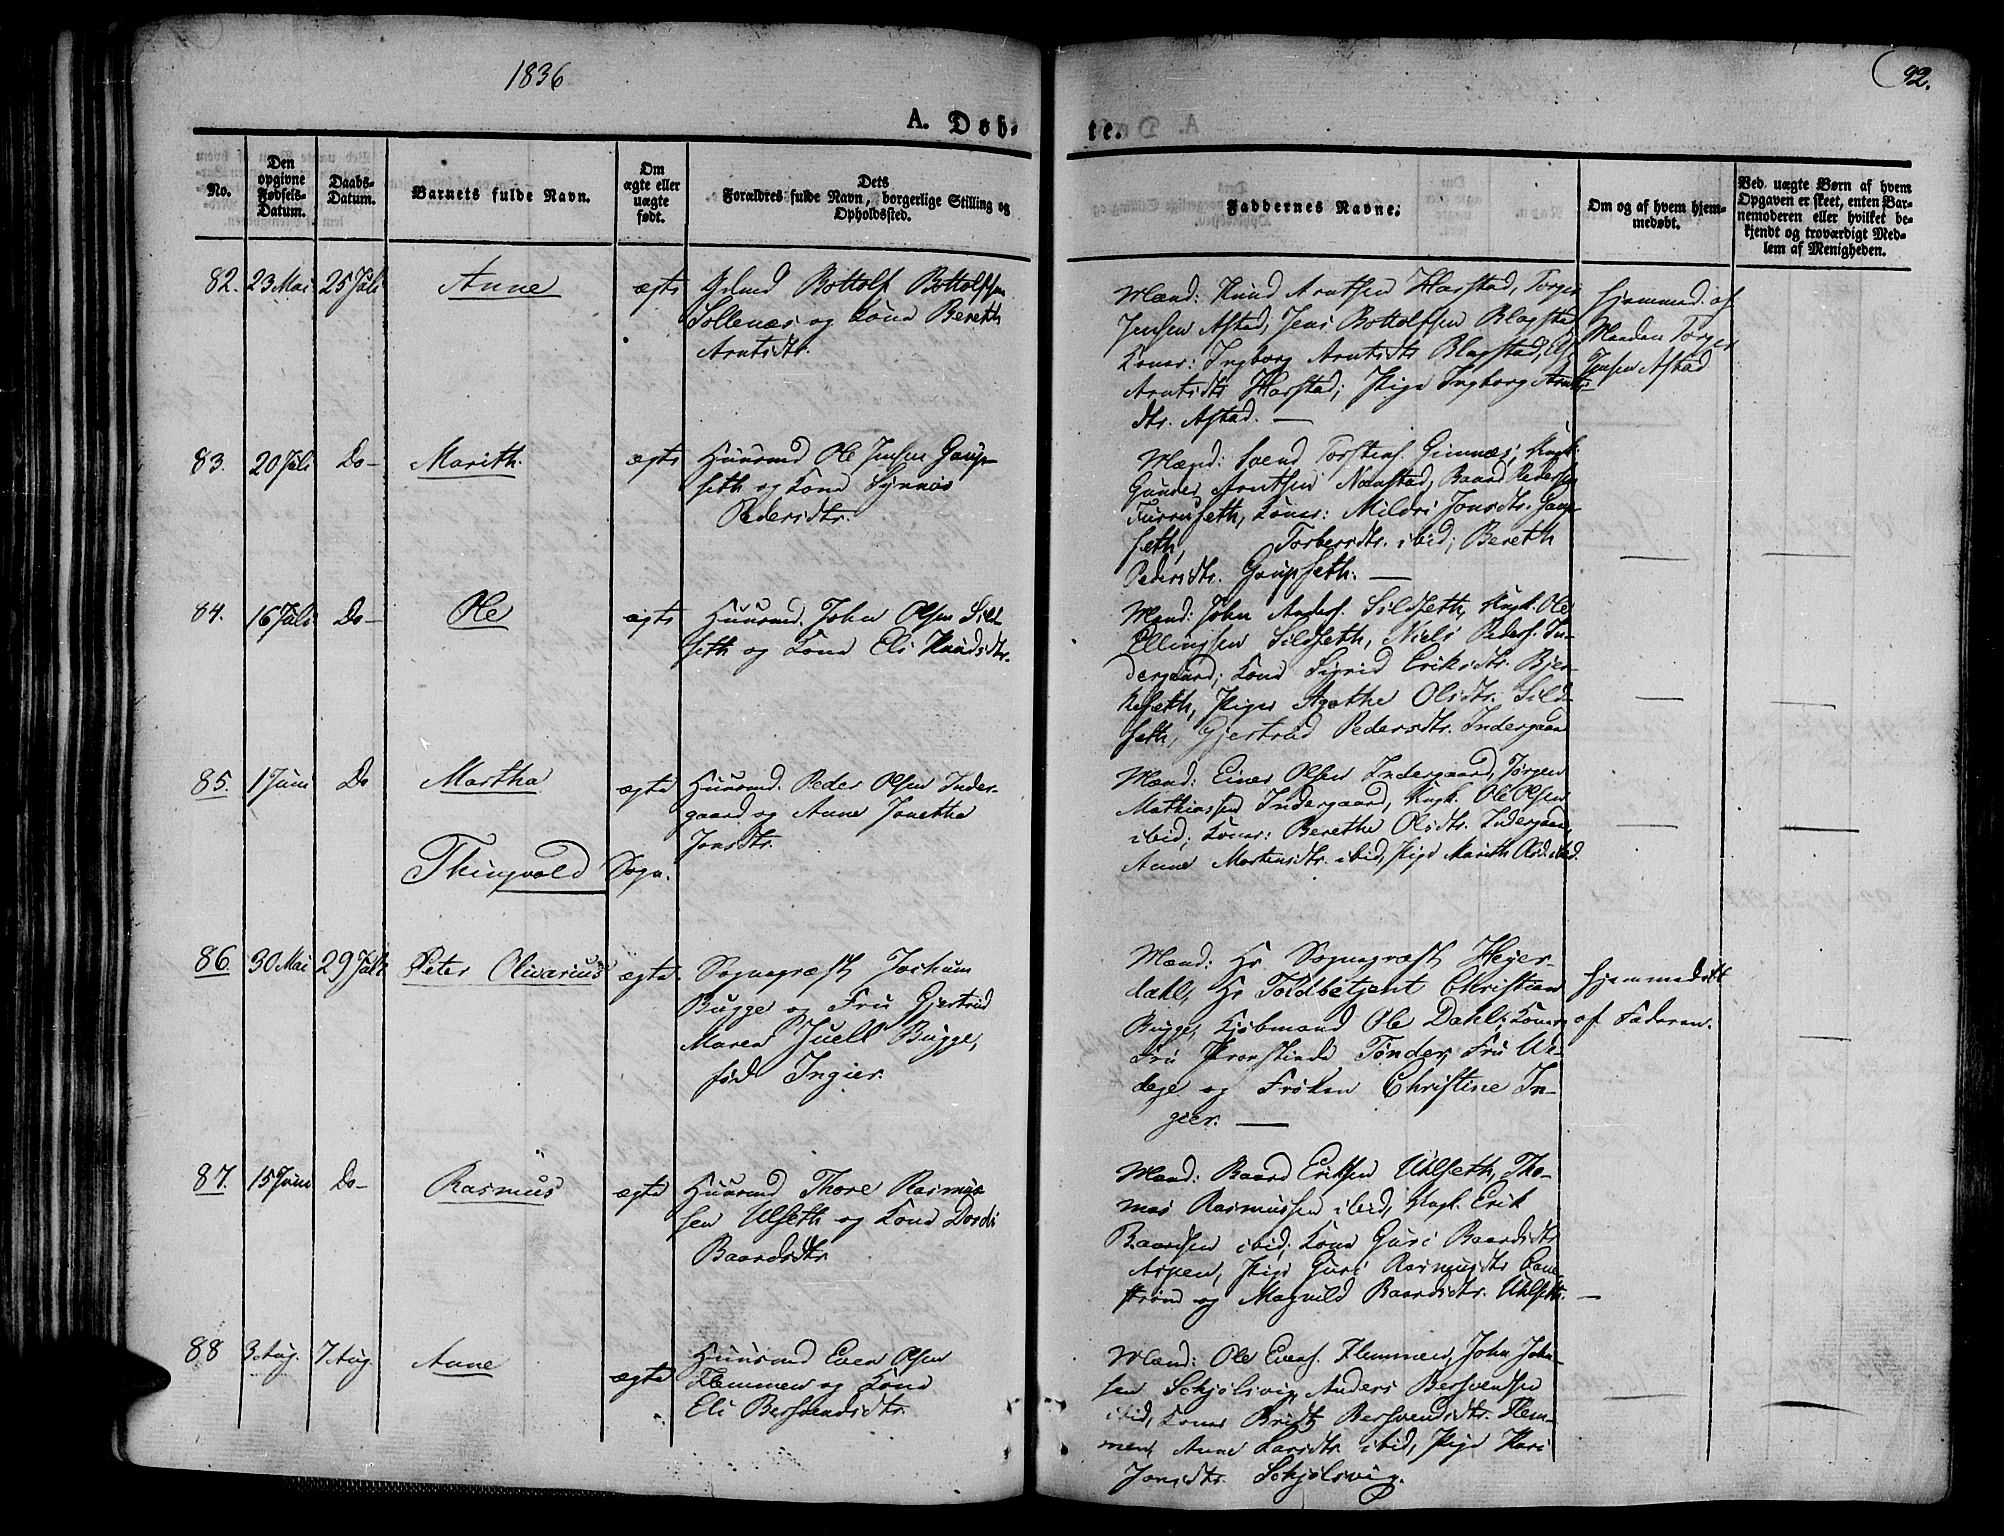 1836
92.
A. Døb-
te.
No.
Den
opgivne
Fødsels-
Datum.
Daabs-
Datum.
Barnets fulde Navn.
Om
ægte eller
uægte
født.
Dets
Forældres fulde Navn, borgerlige Stilling og
Opholdssted.
Faddernes Navne.
Om og af hvem hjem-
medøbt.
Ved uægte Børn af hvem
Opgaven er skeet, enten Bar-
nemoderen eller hvilket be-
kjendt og troværdigt Med-
lem af Menigheden.
82. 23 Mai 25 Juli Anne ægte Bottolf Bottolfsen
Sollenæs og Kone Bereth
Arntsdtr.
Mænd: Knud Arntsen Harstad, Torger
Jensen Astad, Jens Bottolfsen Blagstad
Koner: Ingborg Arntsdtr Blagstad,
Arntsdtr Harstad; Pige Ingborg Arnts-
dtr. Astad. —
Hjemmed. af
Manden Torger
Jensen Astad
83. 20 Juli Do— Marith. ægte Huusmd Ole Jensen Gaup-
seth og Kone Synnøs
Pedersdtr.
Mænd: Svend Torstens. Gimnæs; Ungk.
Gunder Arntsen Naastad, Baard Pedersen
Furruseth, Koner: Mildri Jonsdtr. Gaup-
seth, Torbersdtr. ibid; Bereth
Pedersdtr. Gaupseth. —
84. 16 Juli Do— Ole ægte Huusmd. John Olsen Sild-
seth og Kone Eli Knudsdtr.
Mænd: John Anders. Sildseth, Ungk. Ole
Ellingsen Sildseth, Niels Peders. In-
dergaard; Kone Sigrid Eriksdtr. Bjer-
keseth, Piger Agathe Olsdtr. Sild-
seth, Gjertrud Pedersdtr. Indergaard
85. 1 Juni Do Martha ægte Huusmd. Peder Olsen Inder-
gaard og Anne Jonetha
Jonsdtr.
Mænd: Einer Olsen Indergaard, Jørgen
Mathiassen Indergaard, Ungk. Ole Olsen
ibid; Koner: Berethe Olsdtr. Indergaard,
Anne Mortensdtr. ibid, Pige Marith Olsd. ibid.
Thingvold Sogn.
86. 30 Mai 29 Juli Peter Olivarius ægte Sognepræst Jochum
Bugge og Fru Gjertrud
Maren Juell Bugge,
fød Ingier.
Mænd: Hr Sognepræst Heyer-
dahl, Hr Toldbetjent Christian
Bugge, Kjøbmand Ole Dahl; Koner
Fru Provstinde Tønder, Fru Ul-
dege og Frøken Christine In-
gier. —
Hjemmedøbt
af Faderen.
87. 15 Juni Do— Rasmus ægte Huusmd Thore Rasmus-
sen Ulseth og Kone Dordi
Baardsdtr
Mænd: Baard Eriksen Ulseth, Tho-
mas Rasmussen ibid, Ungk. Erik
Baardsen ibid; Kone Guri Baardsdtr
Aspen, Pige Guri Rasmusdtr
strand og Magnild Baardsdtr. Ulseth. —
88 3 Aug. 7 Aug. Anne ægte Huusmd Even Olsen
Flemmen og Kone
Eli Bersvendsdtr.
Mænd: Ole Evens. Flemmen, John John-
sen Schjølsvig, Anders Bersvendsen
ibid, Koner Britt Bersvendsdtr. Flem-
men, Anne Larsdtr ibid, Pige Kari
Jonsdtr. Schjølsvig.